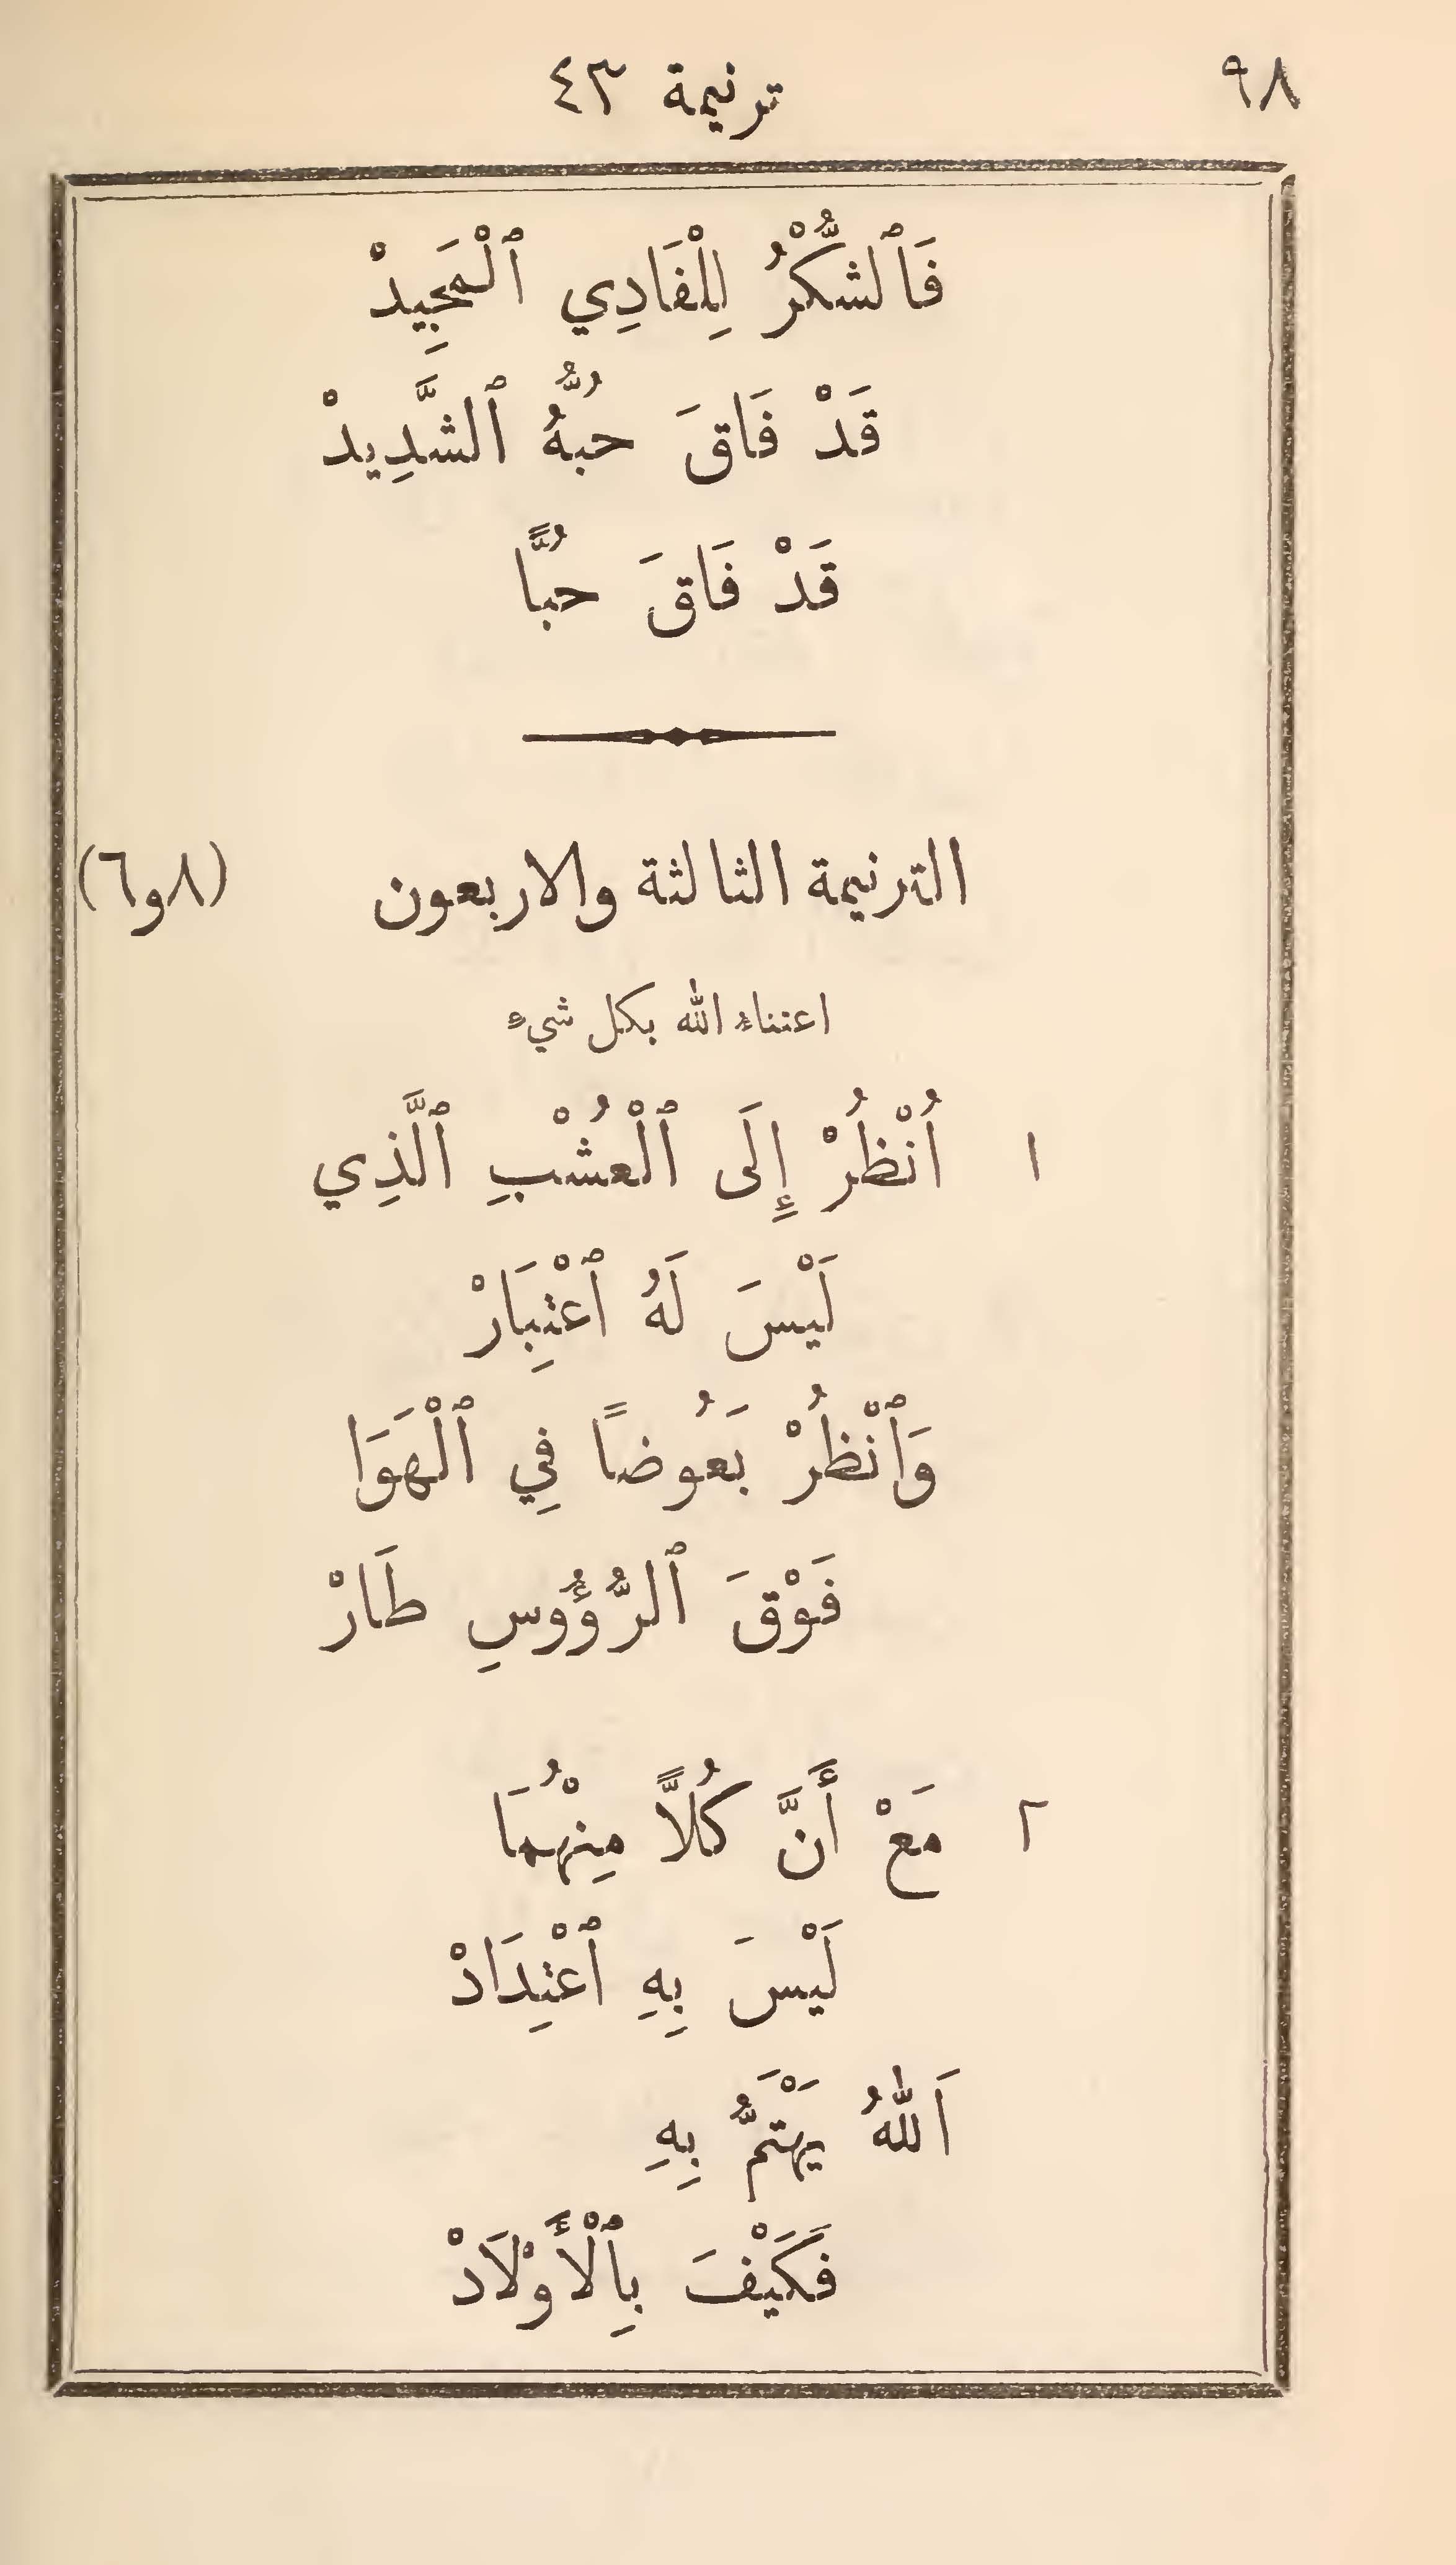 ٩٨ ترنيمة ٤٣
فَٱلشُّكْرُ لِلْفَادِي ٱلْمَجِيدْ
قَدْ فَاقَ حُبُّهُ ٱلشَّدِيدْ
قَدْ فَاقَ حُبًّا
الترنيمة الثالثة والاربعون (٨و٦)
اعتناءُ الله بكل شيءٍ
١ اُنْظُرْ إِلَى ٱلْعُشْبِ ٱلَّذِي
لَيْسَ لَهُ ٱعْتِبَارْ
وَٱنْظُرْ بَعُوضاً فِي ٱلْهَوَا
فَوْقَ ٱلرُّؤُوسِ طَارْ
٢ مَعْ أَنَّ كُلاًّ مِنْهُمَا
لَيْسَ بِهِ ٱعْتِدَادْ
اَللهُ يَهْتَمُّ بِهِ
فَكَيْفَ بِٱلْأَوْلَادْ